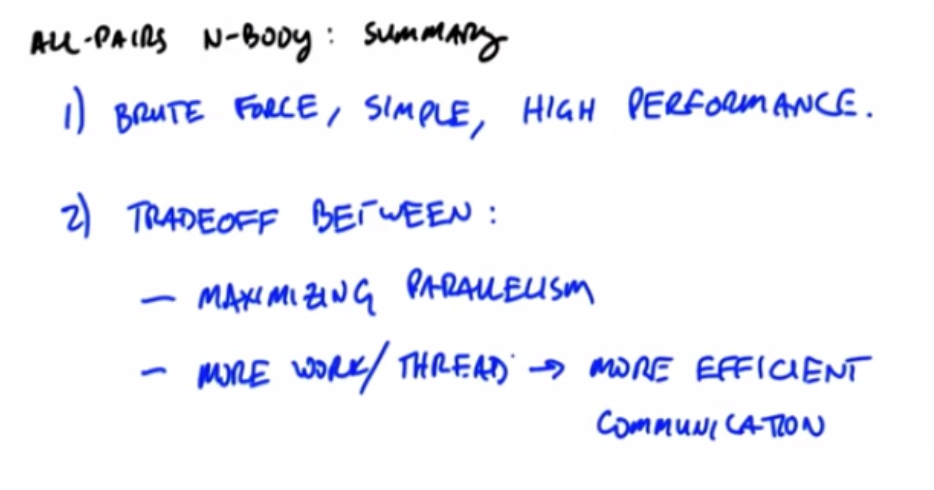 ALL-PAIRS N-BODY: SUMMARY
1) BRUTE FORCE, SIMPLE, HIGH PERFORMANCE.
2) TRADEOFF BETWEEN:
– MAXIMIZING PARALLELISM
– MORE WORK/THREAD → MORE EFFICIENT
COMMUNICATION